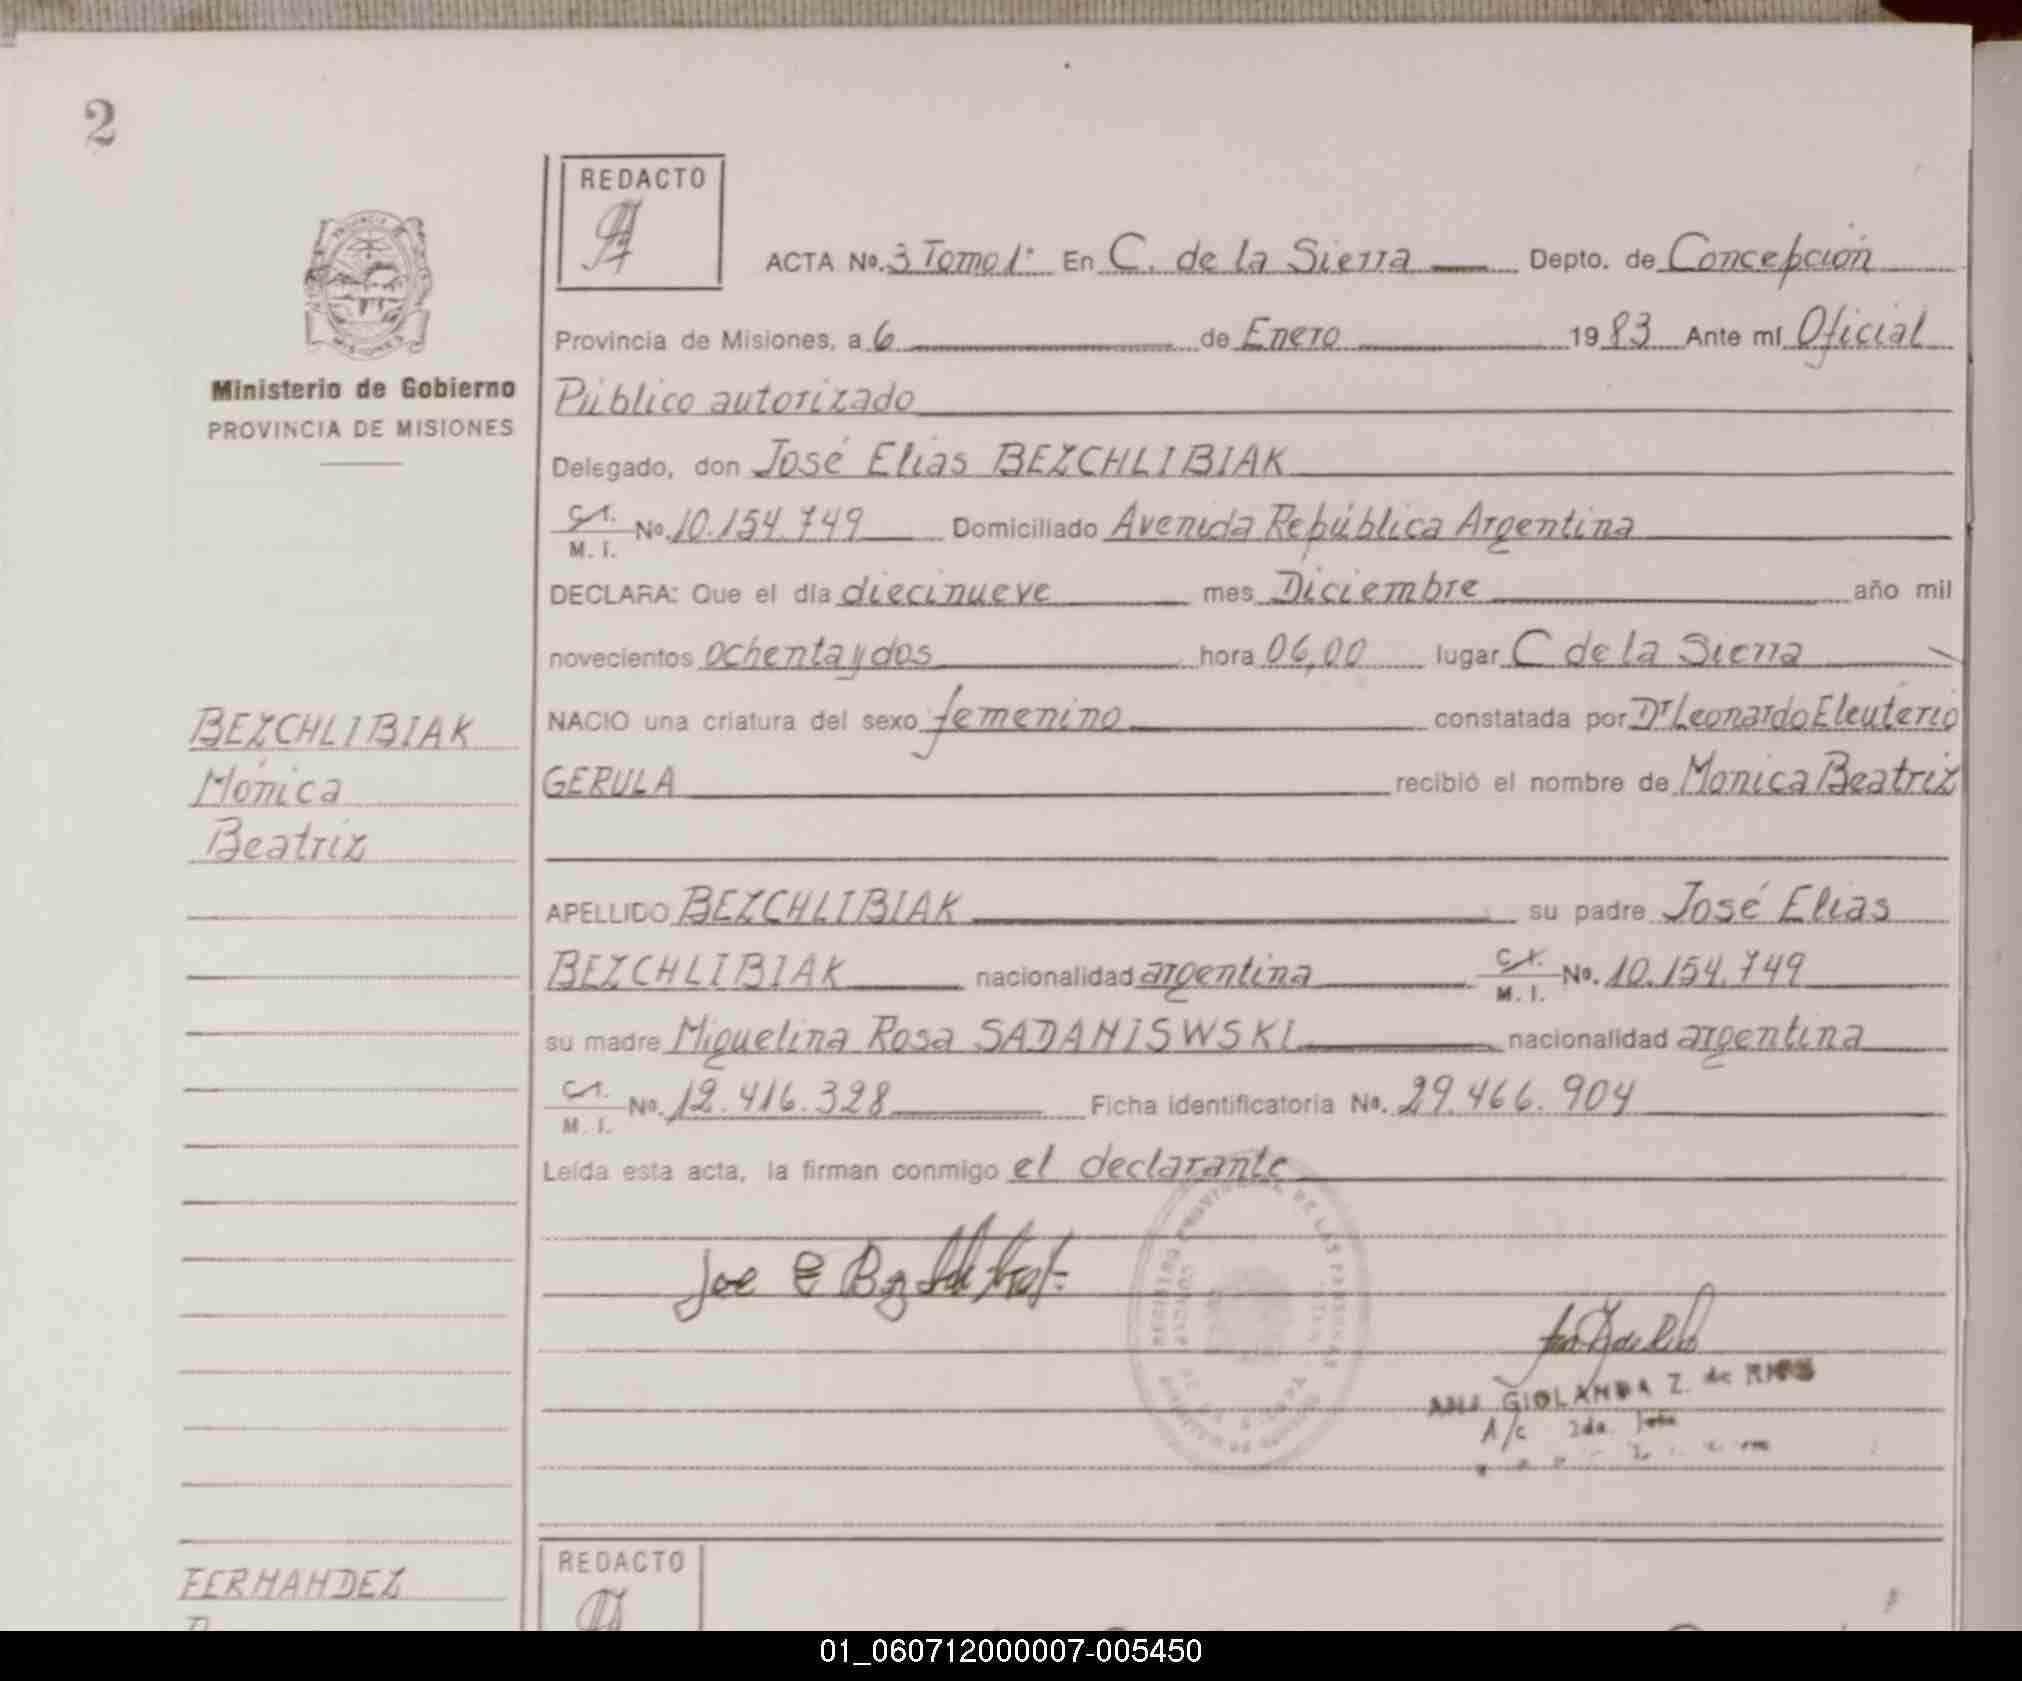 2
REDACTO
ACTA No. 3 Tomo 1º En C. de la Sierra Depto. de Concepción
Provincia de Misiones, a 6 de Enero 1983 Ante mí Oficial
Ministerio de Gobierno
PROVINCIA DE MISIONES
Público autorizado
Delegado, don José Elias BEZCHLIBIAK
C.I.
M. I. No. 10.154.749 Domiciliado Avenida República Argentina
DECLARA: Que el día diecinueve mes Diciembre año mil
novecientos ochenta y dos hora 06,00 lugar C de la Sierra
BEZCHLIBIAK
Mónica
Beatriz
NACIO una criatura del sexo femenino constatada por Dr Leonardo Eleuterio
GERULA recibió el nombre de Mónica Beatriz
APELLIDO BEZCHLIBIAK su padre José Elias
BEZCHLIBIAK nacionalidad argentina C.I.
M. I. No. 10.154.749
su madre Miquelina Rosa SADANISWSKI nacionalidad argentina
C.I.
M. I. No. 12.416.328 Ficha identificatoria No. 29.466.904
Leída esta acta, la firman conmigo el declarante
DE LAS PERSONAS
GIOLANDA Z. de
A/c 2da.
FERNANDEZ
REDACTO
01_060712000007-005450